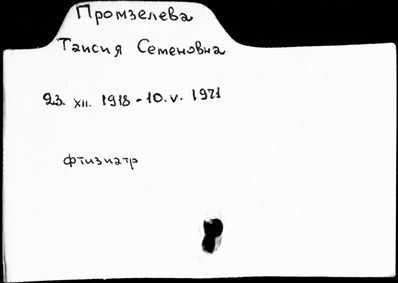 Промзелева
Таисия Семеновна
23. XII. 1918 - 10. V. 1971
фтизиатр